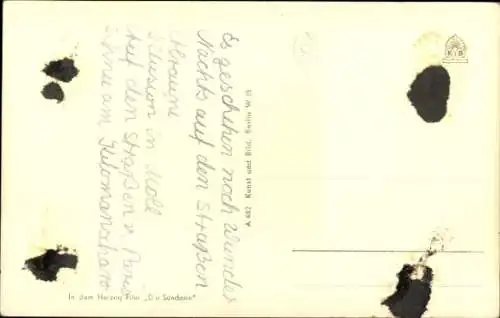 Es geschehen noch Wunder
Nachts auf den Straßen
Alraune
Illusion in Moll
Auf den Straßen v Paris
Schnee am Kilimanscharo
A 682 Kunst und Bild, Berlin W 15
K u B
In dem Herzog Film „Die Sünderin“